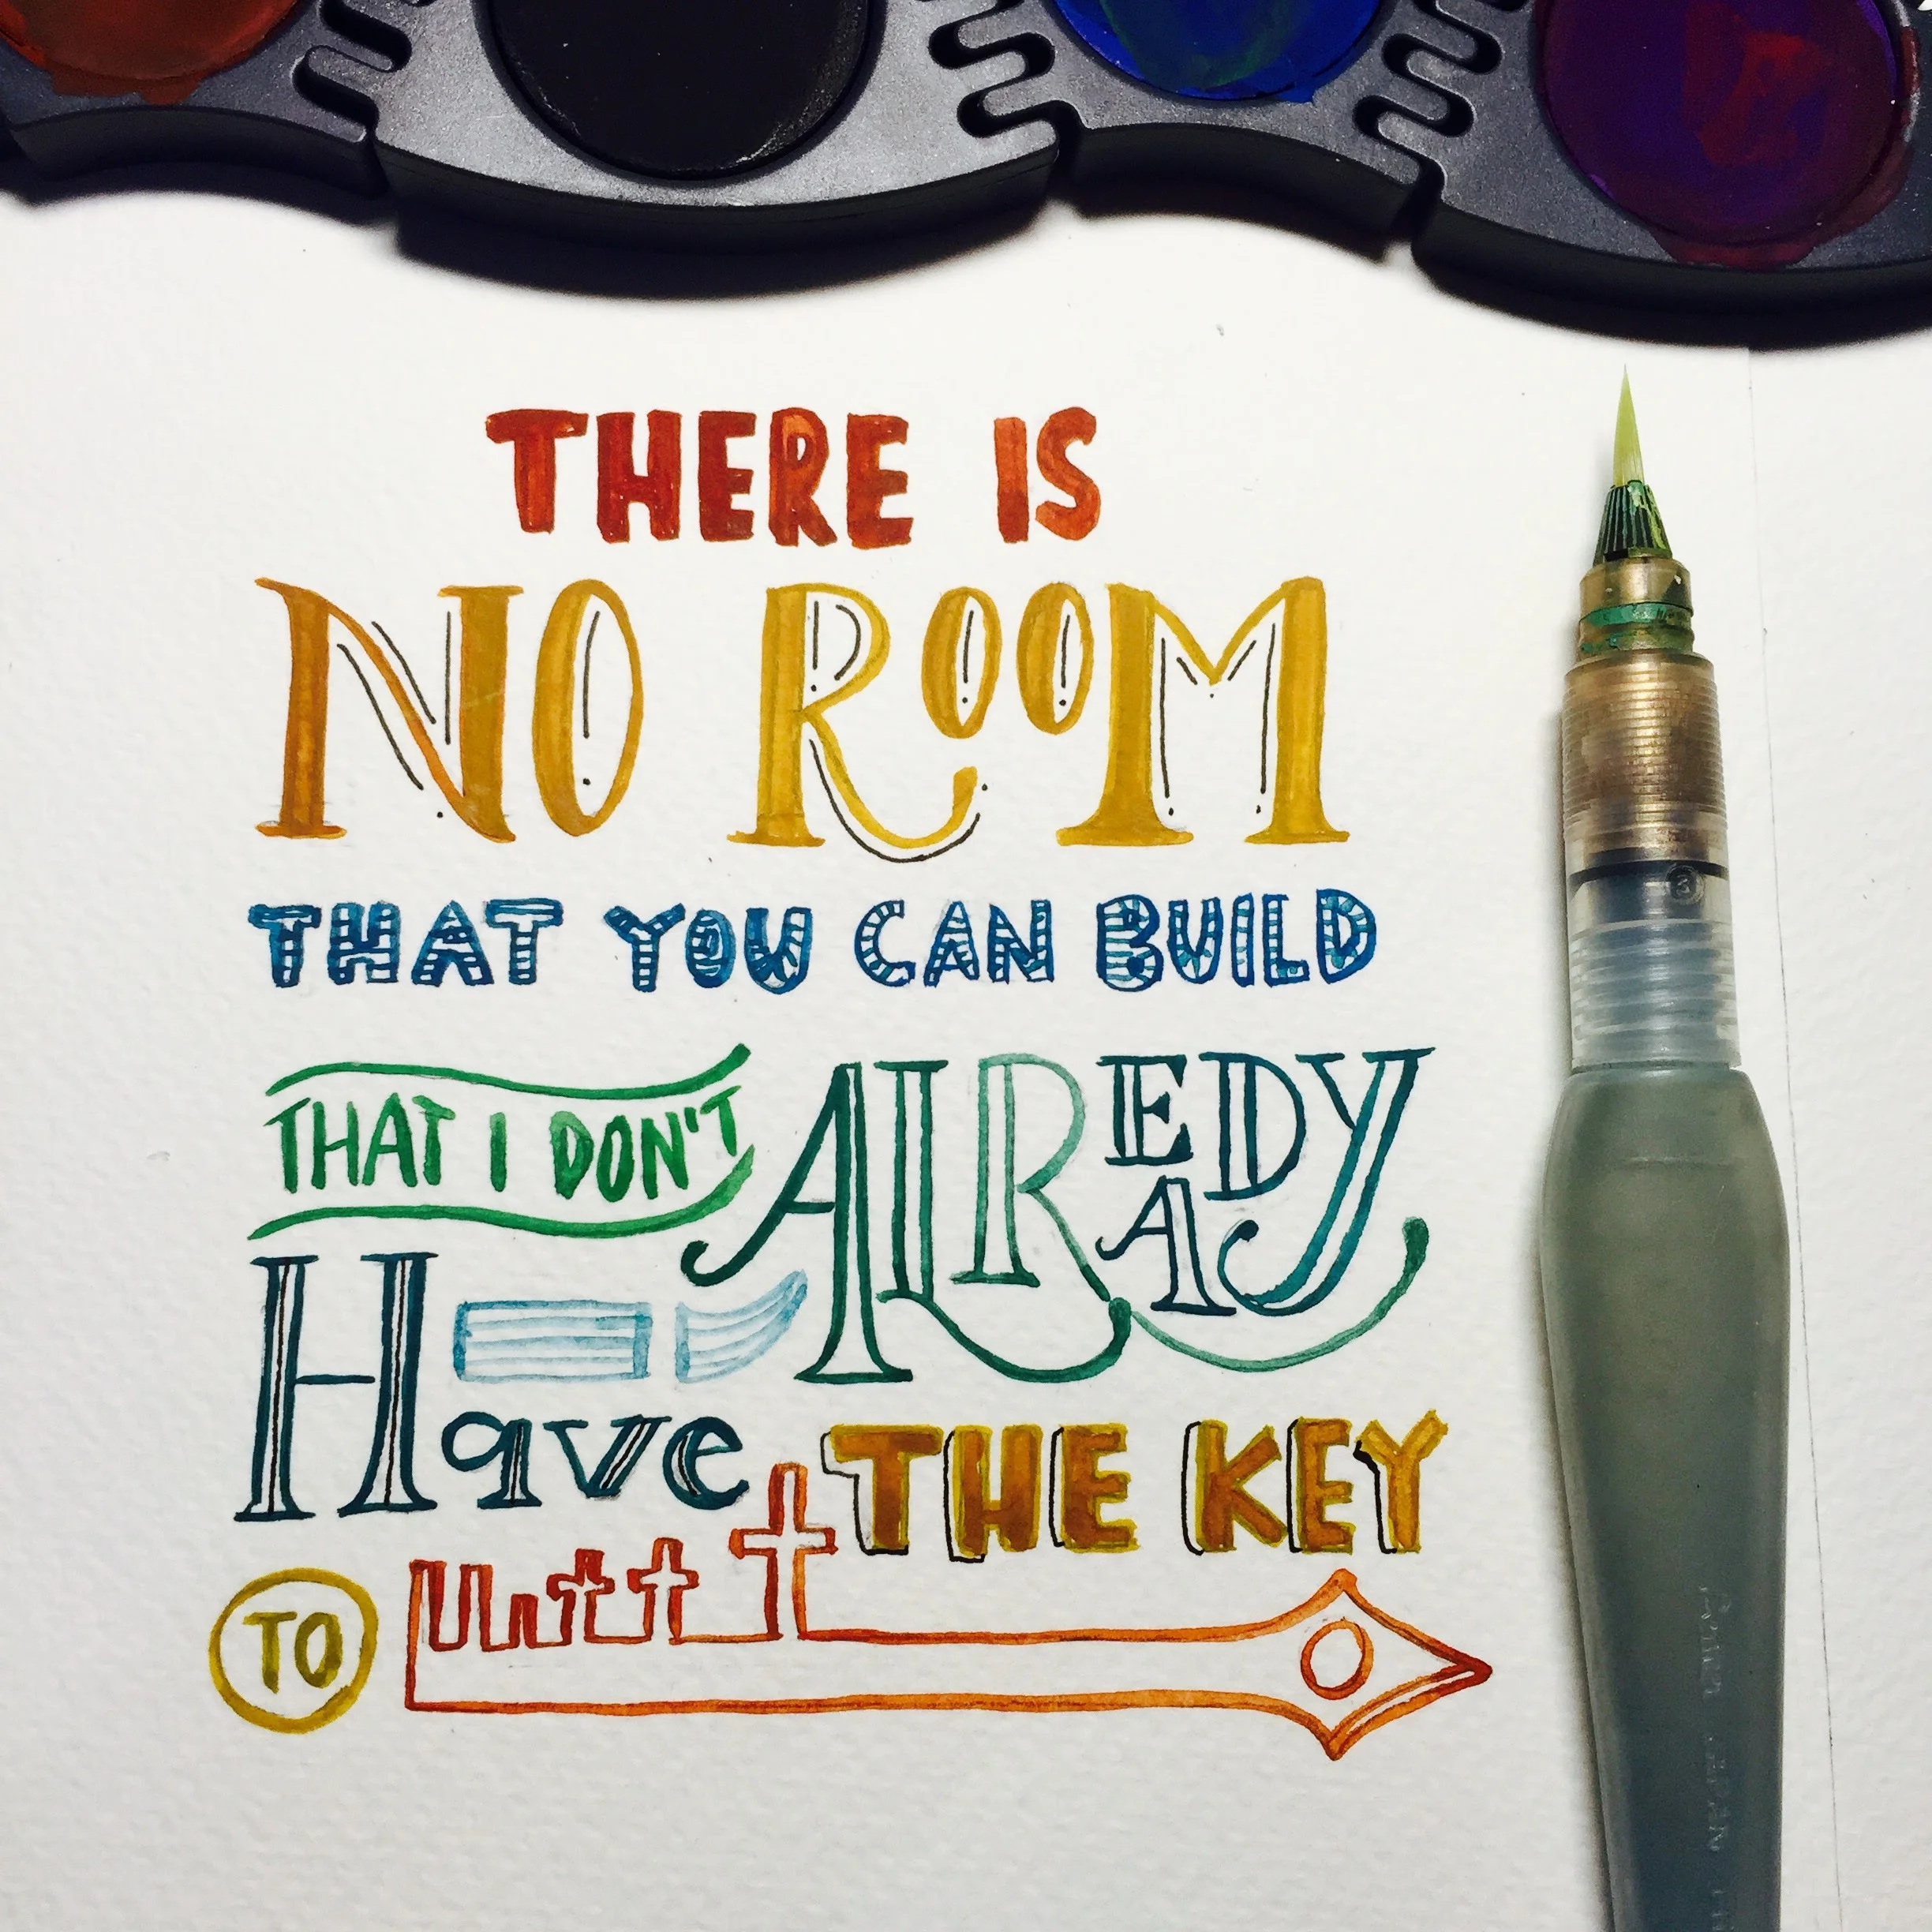 THERE IS
NO ROOM
THAT YOU CAN BUILD
THAT I DON'T ALREADY
Have THE KEY
TO